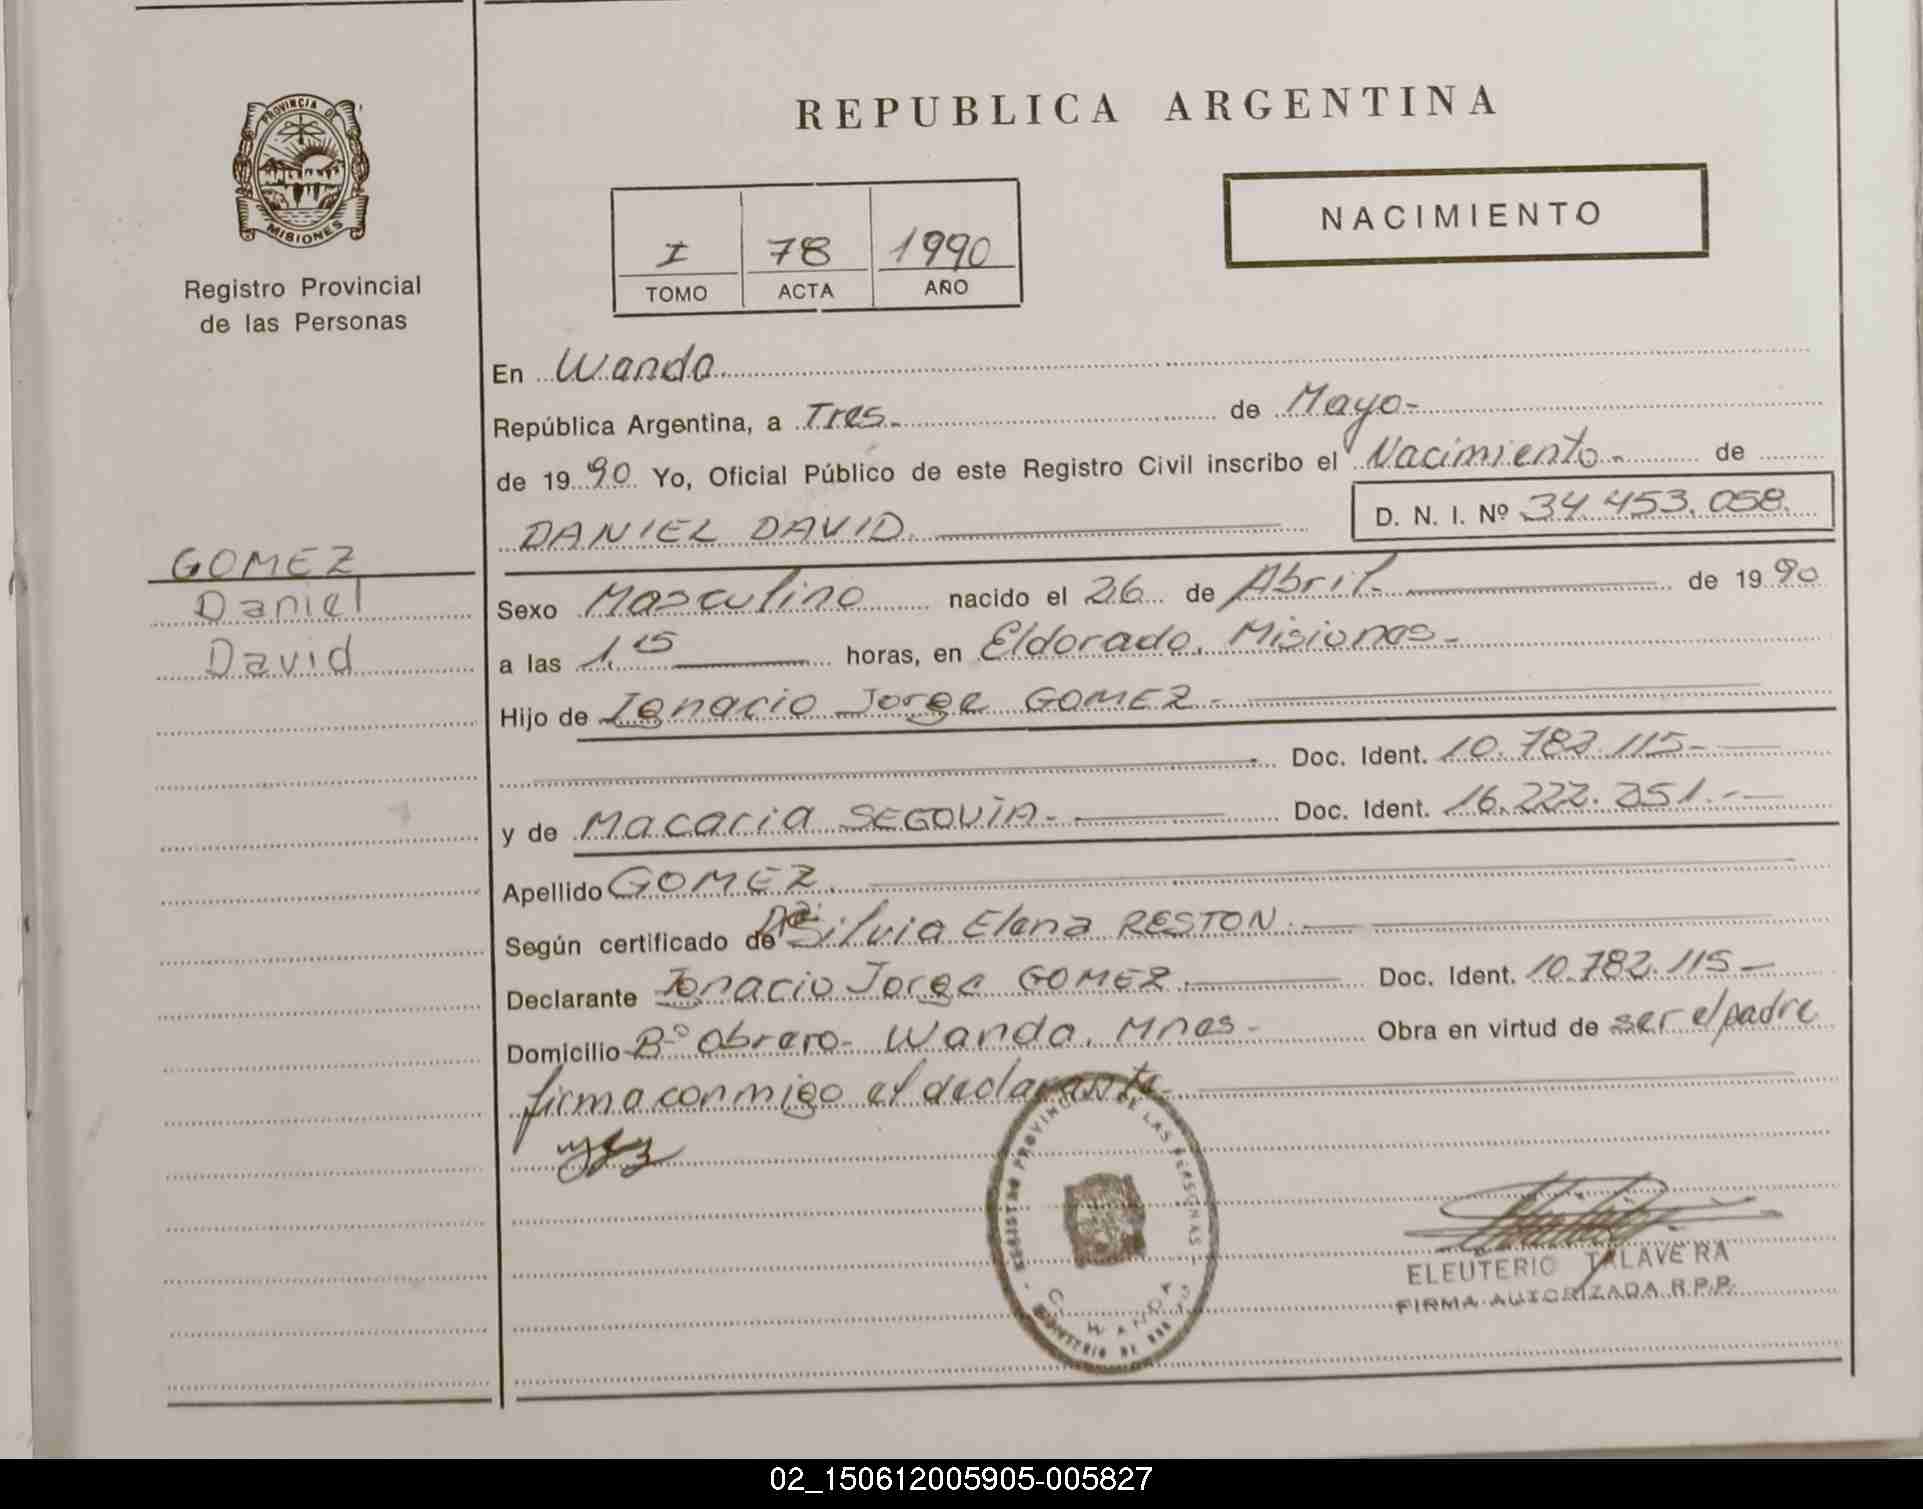 PROVINCIA DE
MISIONES
Registro Provincial
de las Personas
GOMEZ
Daniel
David
REPUBLICA ARGENTINA
NACIMIENTO
I 78 1990
TOMO ACTA AÑO
En Wanda
República Argentina, a Tres.- de Mayo-
de 1990 Yo, Oficial Público de este Registro Civil inscribo el Nacimiento.- de
DANIEL DAVID. D. N. I. Nº 34.453.058.
Sexo Masculino nacido el 26 de Abril.- de 1990
a las 1,15 horas, en Eldorado, Misiones-
Hijo de Ignacio Jorge GOMEZ.-
Doc. Ident. 10.782.115-
y de Macaria SEGOVIA.- Doc. Ident. 16.222.351.-
Apellido GOMEZ.
Según certificado de Dra Silvia Elena RESTON.-
Declarante Ignacio Jorge GOMEZ.- Doc. Ident. 10.782.115-
Domicilio Bº Obrero- Wanda, Mnes- Obra en virtud de ser el padre
firma conmigo el declarante.-
REGISTRO PROVINCIAL DE LAS PERSONAS
WANDA
MINISTERIO DE
ELEUTERIO TALAVERA
FIRMA AUTORIZADA R.P.P.
02_150612005905-005827